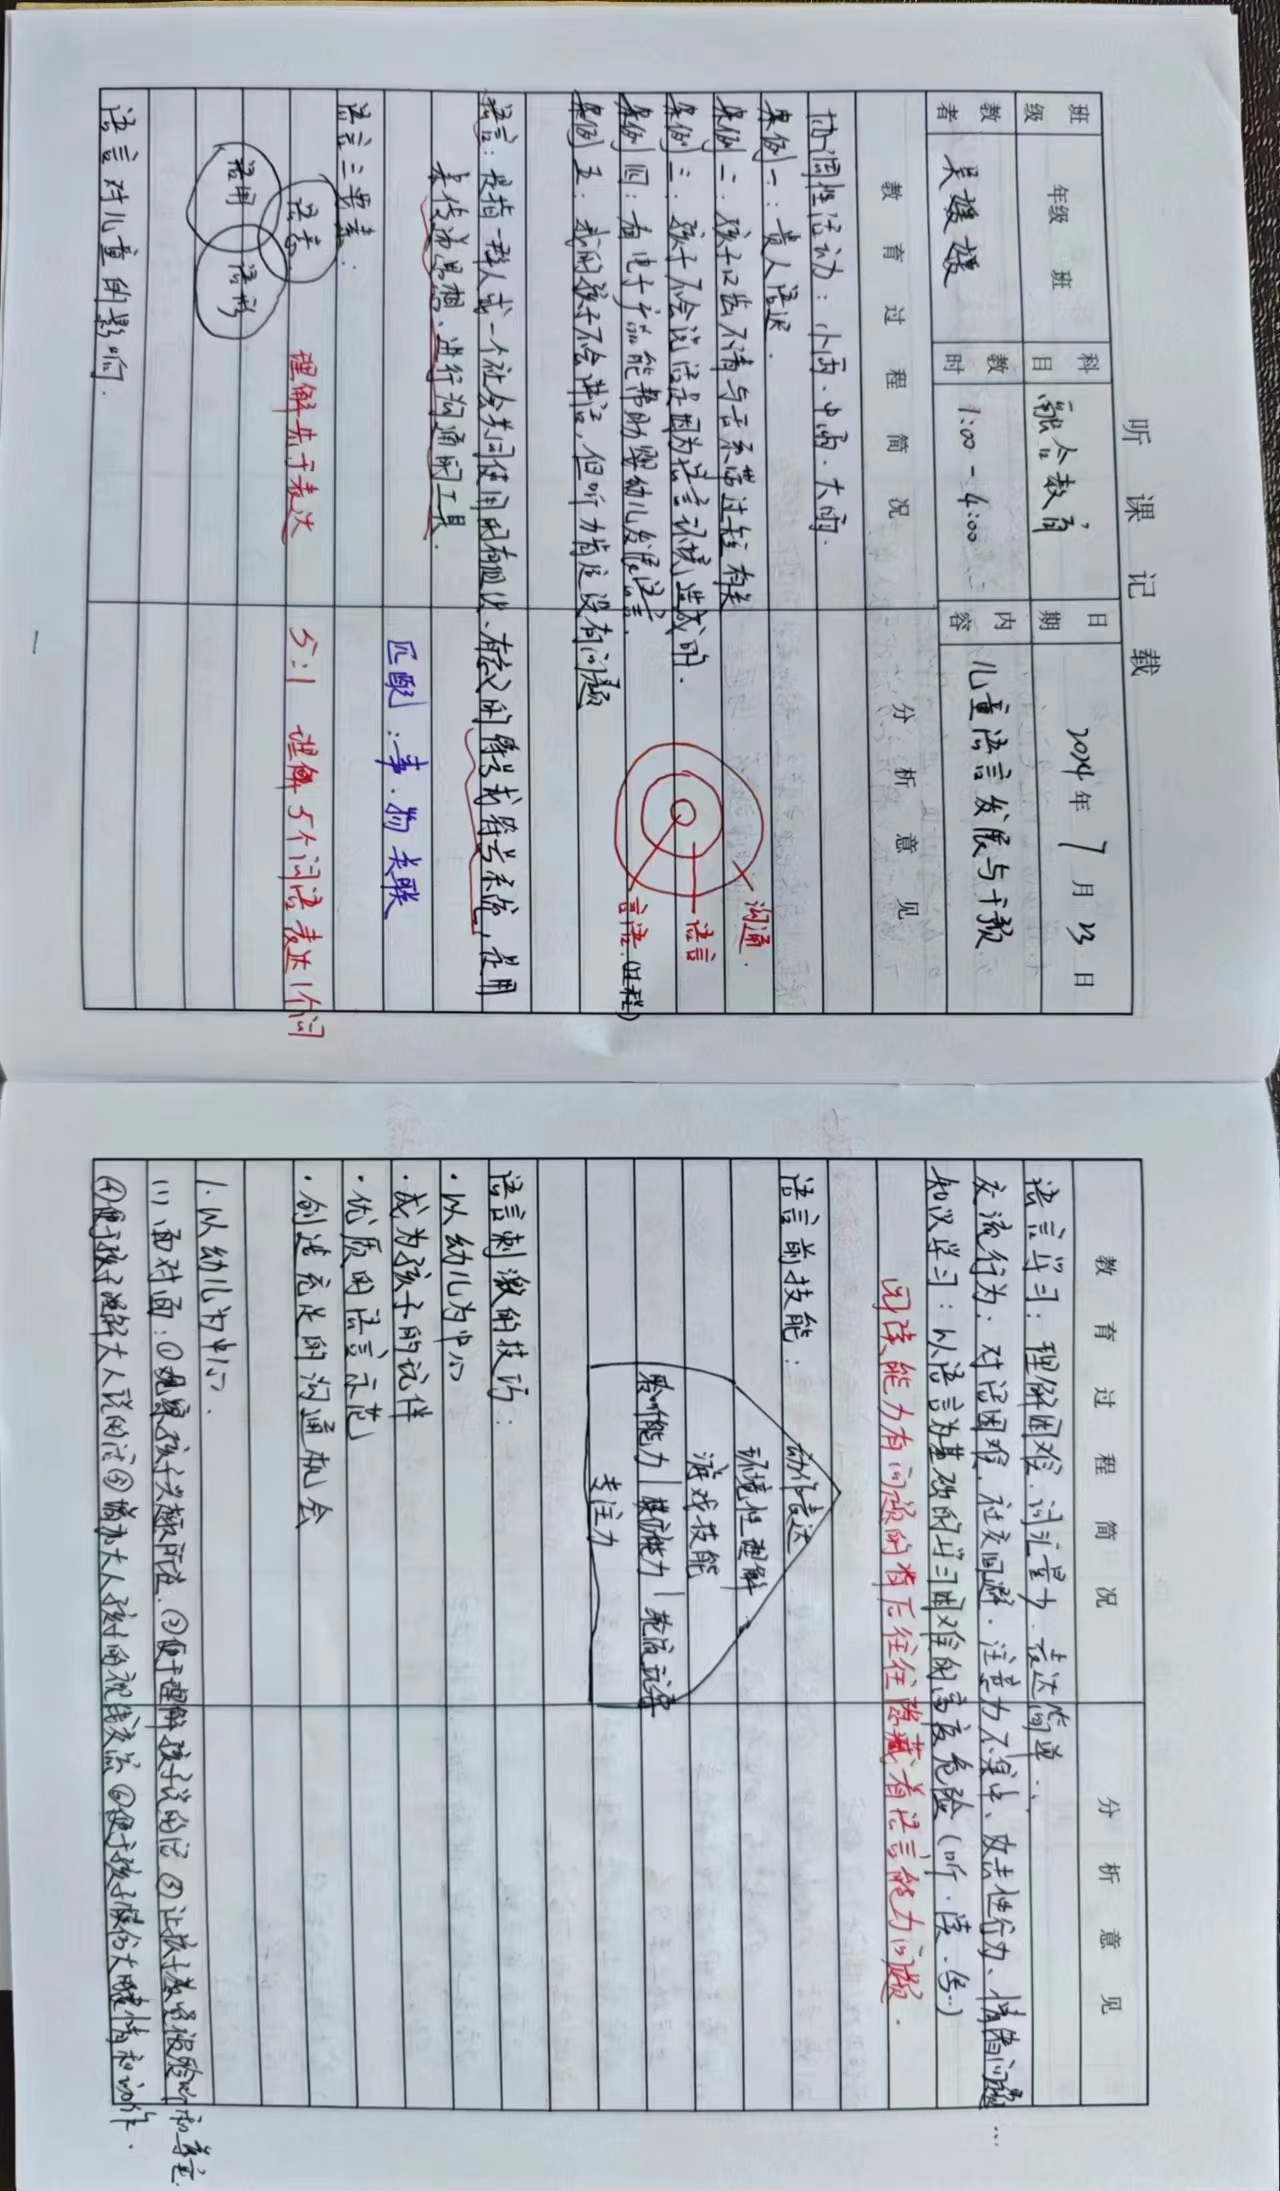 听课记载
班级 年级 班 科目 融合教育 日期 2024年7月23日
教者 吴媛媛 教时 1:00-4:00 内容 儿童语言发展与干预
教育过程简况 分析意见
协调性活动：小雨、中雨、大雨.
案例一：贵人语迟.
案例二：孩子口齿不清与舌系带过短有关
案例三：孩子不会说话是因为语言环境造成的.
案例四：看电子产品能帮助婴幼儿发展语言.
案例五：我的孩子不会讲话，但听力肯定没有问题
沟通.
语言
言语(过程)
语言：是指一群人或一个社会共同使用的有组织、有意义的符号或符号系统，是用
来传递思想、进行沟通的工具.
匹配：事、物关联
语言三要素：
语意
语用 语形
理解先于表达 5:1 理解5个词语表达1个词
语言对儿童的影响.
1
教育过程简况 分析意见
语言学习：理解困难、词汇量少、表达简单...
交流行为：对话困难、社交回避、注意力不集中、攻击性行为、情绪问题...
知识学习：以语言为基础的学习困难的高度危险(听、读、写..)
阅读能力有问题的背后往往隐藏着语言能力问题.
语言前技能：
动作表达
环境性理解
游戏技能
聆听能力 模仿能力 轮流玩等
专注力
语言刺激的技巧：
·以幼儿为中心
·成为孩子的玩伴
·优质的语言示范
·创造充足的沟通机会
1.以幼儿为中心.
(1)面对面：①观察孩子兴趣所在.②便于理解孩子说的话③让孩子感觉被聆听和尊重.
④便于孩子理解大人说的话⑤增加大人孩子的视线交流⑥便于孩子模仿大人表情和动作.